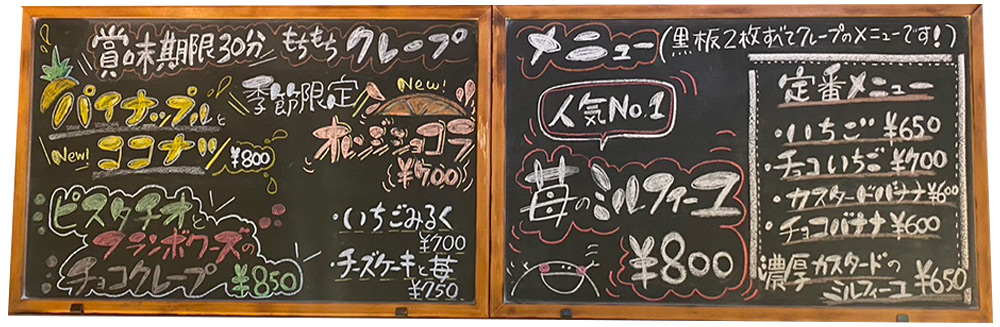 賞味期限30分 もちもちクレープ
パイナップルと
New! ココナツ ¥800
季節限定
New!
オレンジショコラ
¥700
ピスタチオと
フランボワーズの
チョコクレープ ¥850
・いちごみるく
¥700
・チーズケーキと苺
¥750
メニュー(黒板2枚すべてクレープのメニューです!)
人気No.1
苺のミルフィーユ
¥800
定番メニュー
・いちご ¥650
・チョコいちご ¥700
・カスタードバナナ ¥600
・チョコバナナ ¥600
濃厚カスタードの
ミルフィーユ ¥650